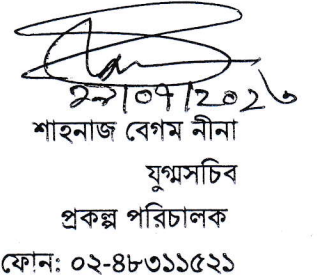 শাহনাজ বেগম নীনা
যুগ্মসচিব
প্রকল্প পরিচালক
ফোন: ০২-৪৮৩১১৫২১